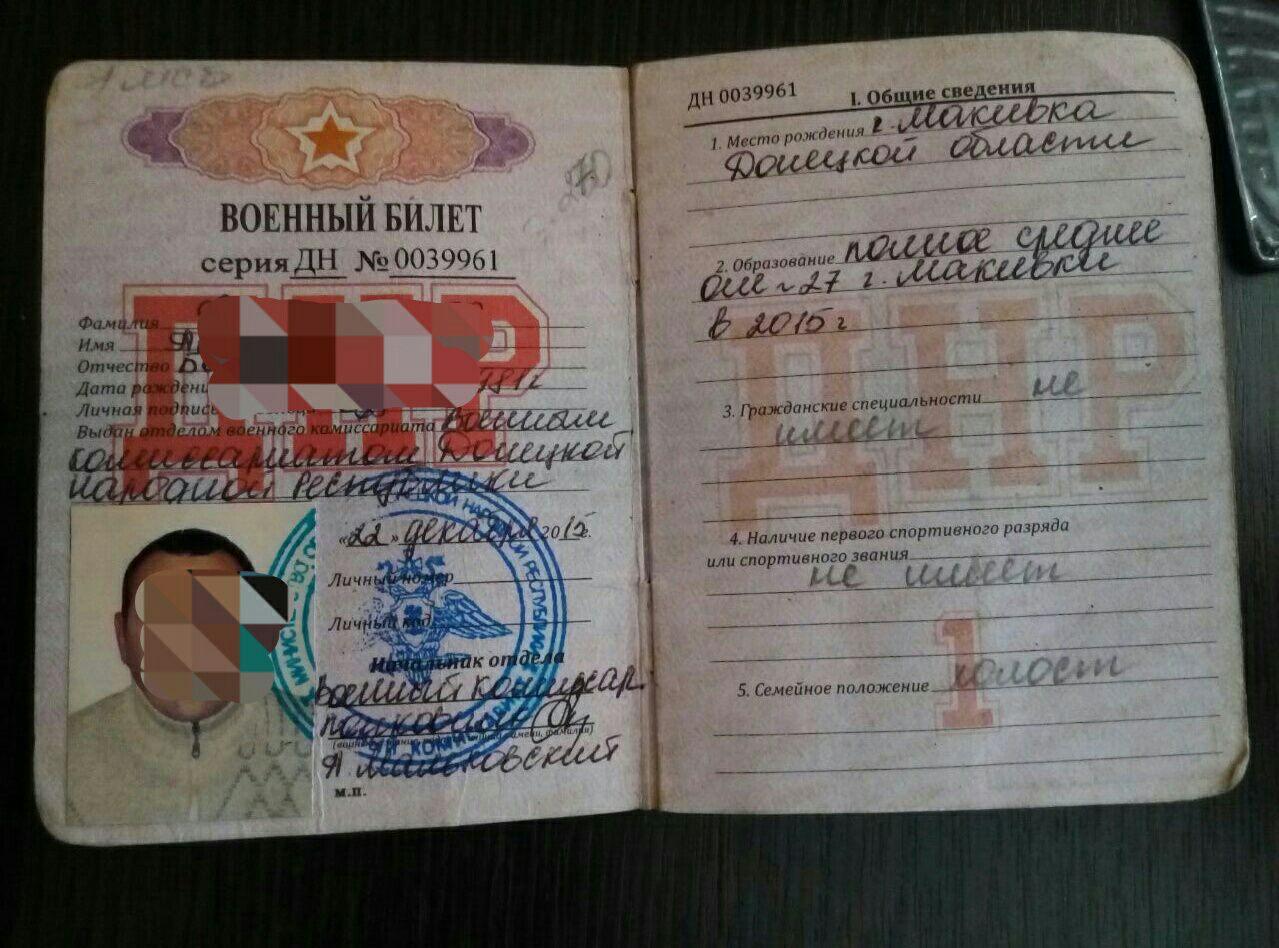 ВОЕННЫЙ БИЛЕТ
серия ДН № 0039961
ДНР
Фамилия
Имя
Отчество
Дата рождени
Личная подпись
Выдан отделом военного комиссариата Военным
комиссариатом Донецкой
народной Республики
«22» декабря 2015г.
Личный номер
Личный код
Начальник отдела
Военный комиссар
полковник
Я. Маньковский
м.п.
ДН 0039961
I. Общие сведения
1. Место рождения г. Макиевка
Донецкой области
2. Образование полное среднее
ОШ №27 г. Макиевки
в 2015 г
ДНР
3. Гражданские специальности не
имеет
4. Наличие первого спортивного разряда
или спортивного звания
не имеет
5. Семейное положение холост
1